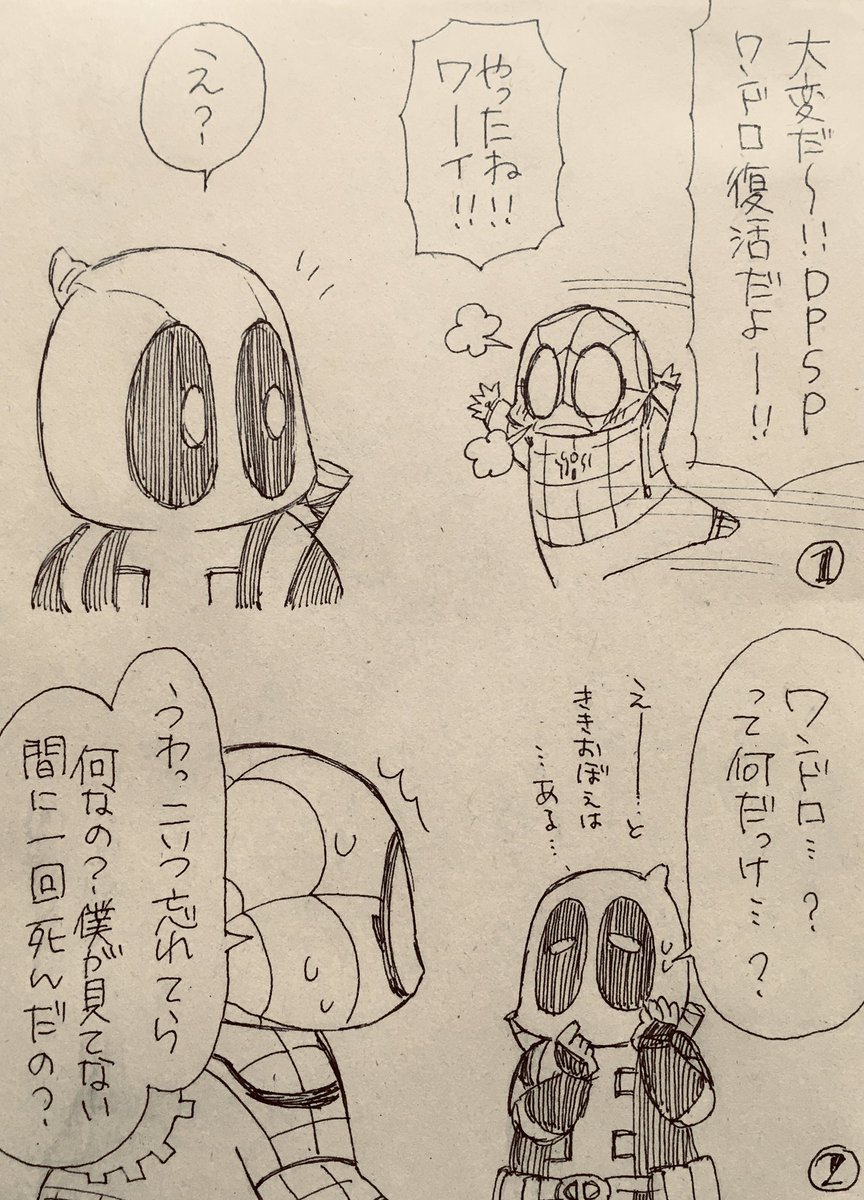 大変だ〜!!DPSP
ワンドロ復活だよー!!
やったね!!
ワーイ!!
え?
1
ワンドロ…?
って何だっけ…?
えー…と
ききおぼえは
…ある…
うわっこいつ忘れてら
何なの?僕が見てない
間に一回死んだの?
2